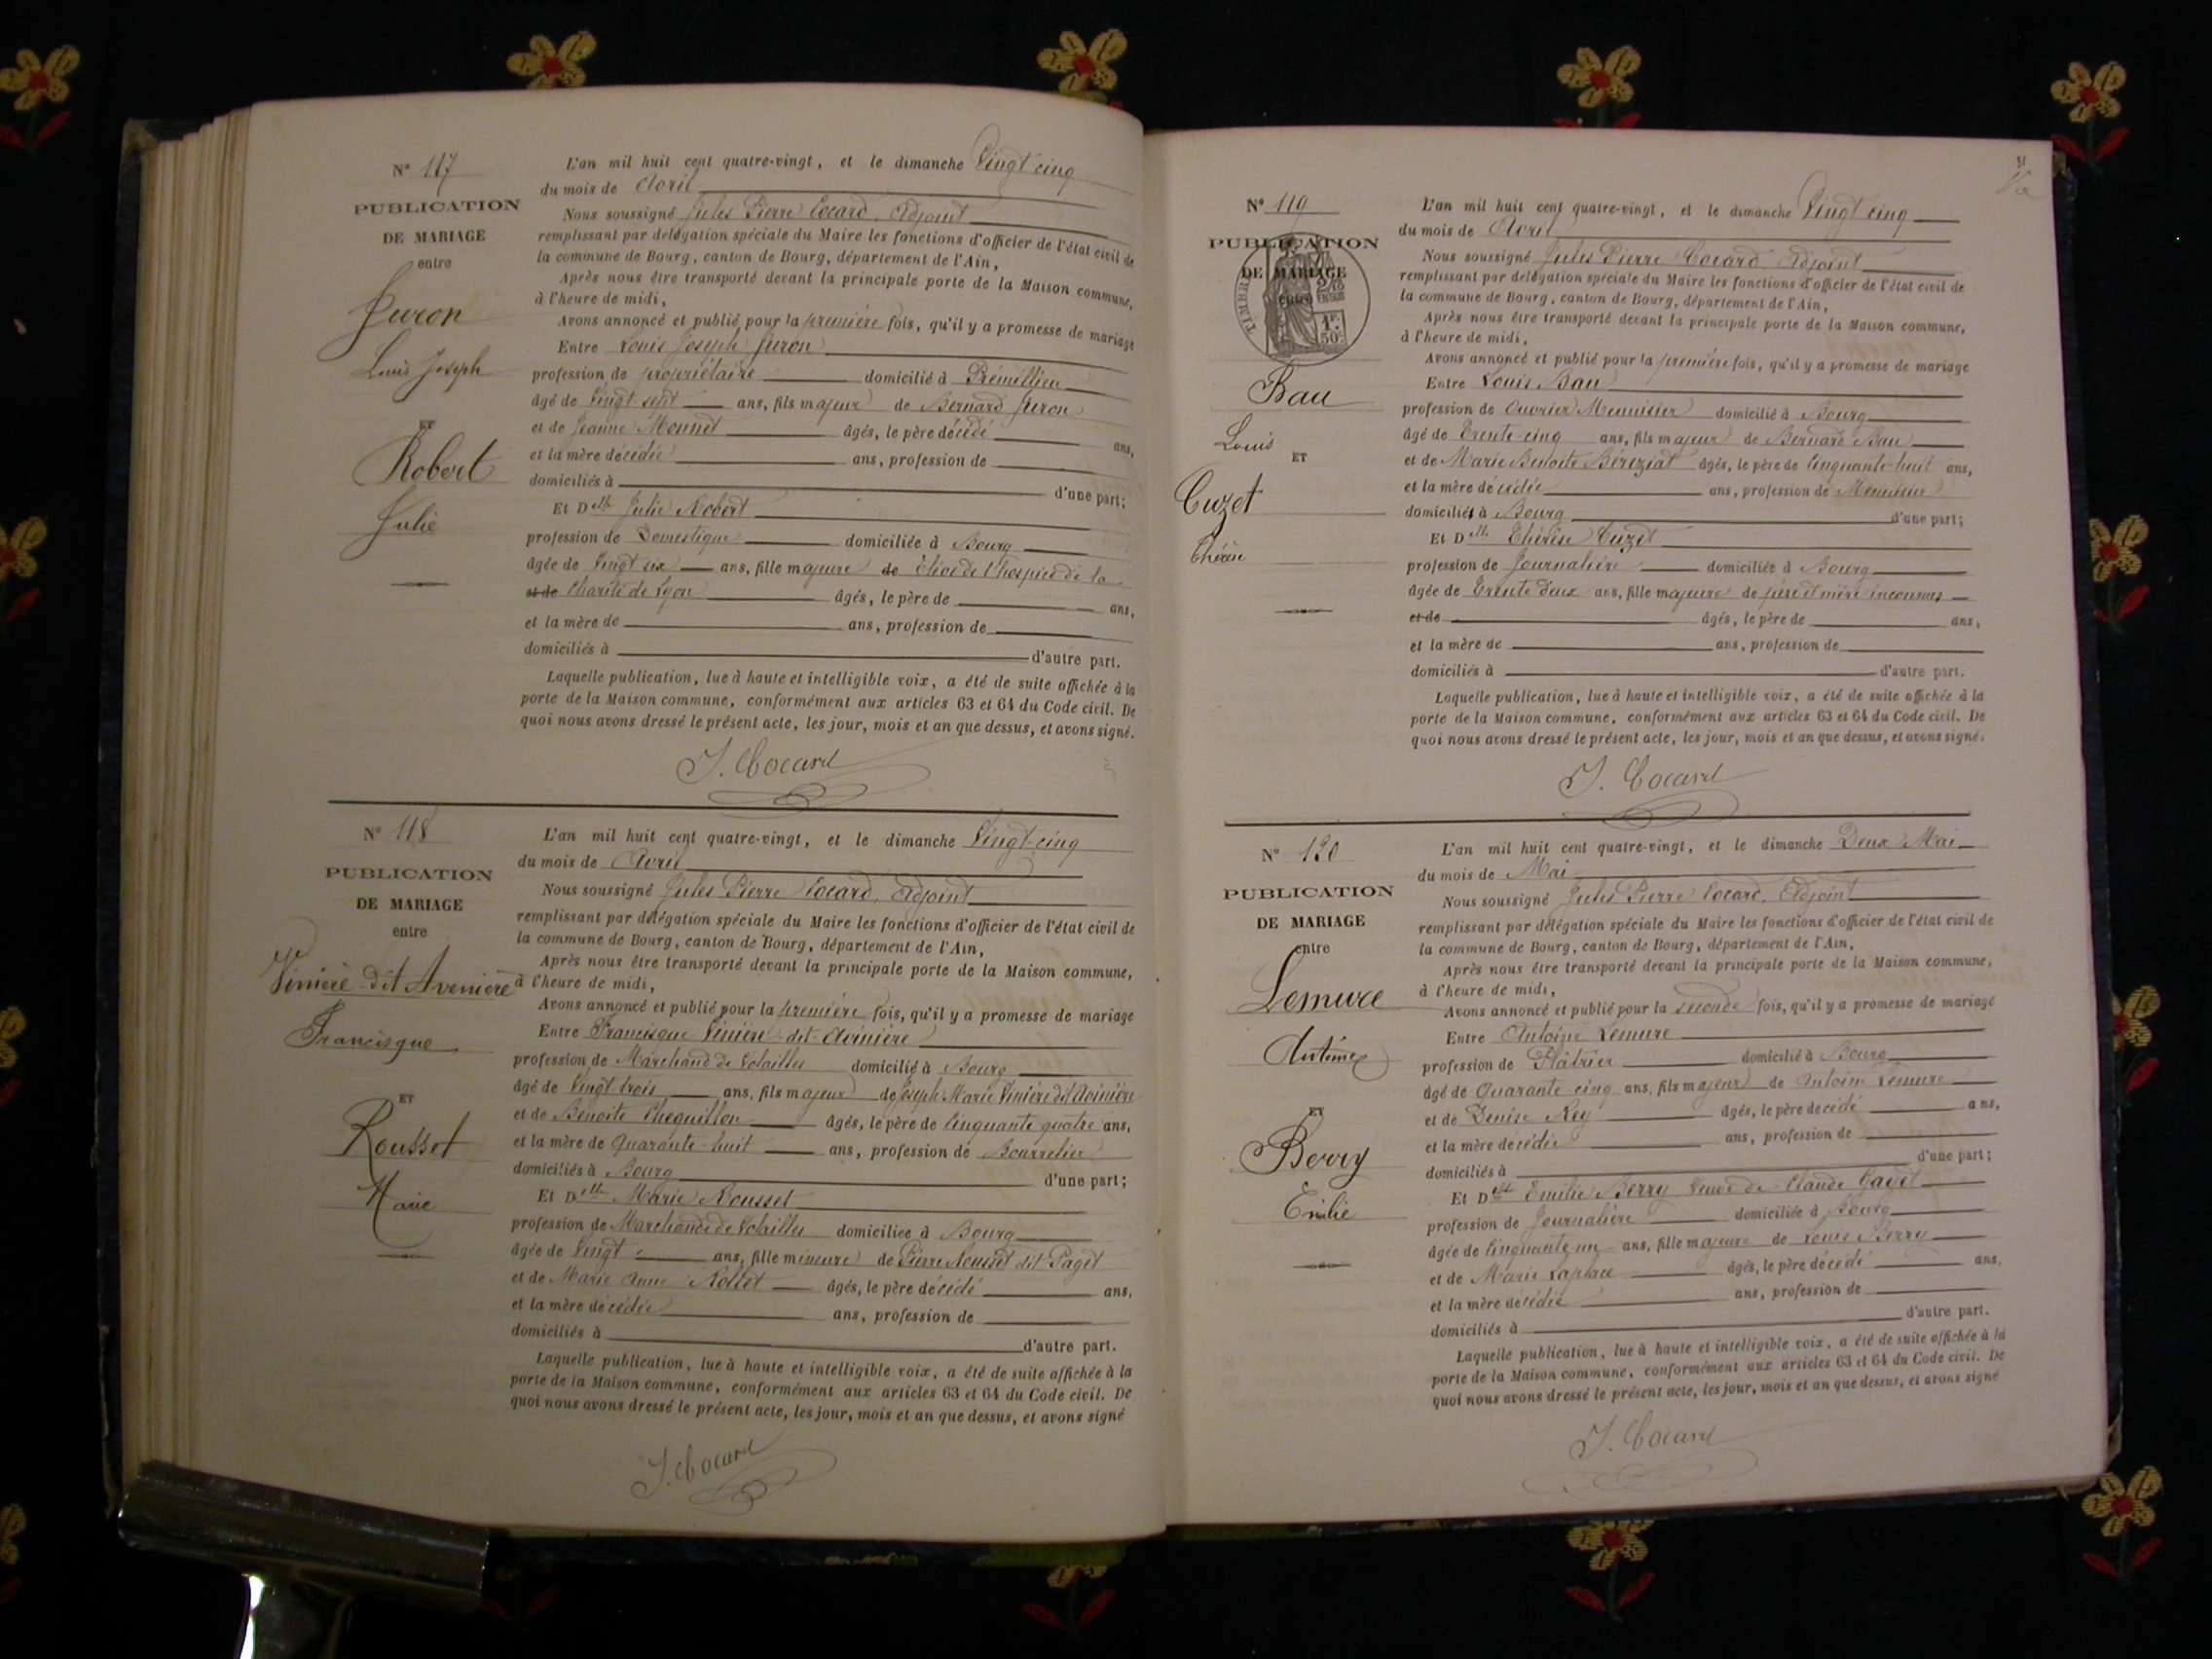 N° 117
PUBLICATION
DE MARIAGE
entre
Juron
Louis Joseph
ET
Robert
Julie
L'an mil huit cent quatre-vingt, et le dimanche Vingt cinq
du mois de Avril
Nous soussigné Jules Pierre Cocard, Adjoint
remplissant par délégation spéciale du Maire les fonctions d'officier de l'état civil de
la commune de Bourg, canton de Bourg, département de l'Ain,
Après nous être transporté devant la principale porte de la Maison commune,
à l'heure de midi,
Avons annoncé et publié pour la première fois, qu'il y a promesse de mariage
Entre Louis Joseph Juron
profession de propriétaire domicilié à Prémillieu
âgé de Vingt sept ans, fils majeur de Bernard Juron
et de Jeanne Monnet âgés, le père décédé ans,
et la mère décédée ans, profession de
domiciliés à d'une part;
Et Delle Julie Robert
profession de Domestique domiciliée à Bourg
âgée de Vingt six ans, fille majeure de élève de l'hospice de la
et de Charité de Lyon âgés, le père de ans,
et la mère de ans, profession de
domiciliés à d'autre part.
Laquelle publication, lue à haute et intelligible voix, a été de suite affichée à la
porte de la Maison commune, conformément aux articles 63 et 64 du Code civil. De
quoi nous avons dressé le présent acte, les jour, mois et an que dessus, et avons signé.
J. Cocard
N° 118
PUBLICATION
DE MARIAGE
entre
Vinière dit Avenière
Francisque
ET
Rousset
Marie
L'an mil huit cent quatre-vingt, et le dimanche Vingt-cinq
du mois de Avril
Nous soussigné Jules Pierre Cocard, Adjoint
remplissant par délégation spéciale du Maire les fonctions d'officier de l'état civil de
la commune de Bourg, canton de Bourg, département de l'Ain,
Après nous être transporté devant la principale porte de la Maison commune,
à l'heure de midi,
Avons annoncé et publié pour la première fois, qu'il y a promesse de mariage
Entre Francisque Vinière dit Avinière
profession de Marchand de Volailles domicilié à Bourg
âgé de Vingt trois ans, fils majeur de Joseph Marie Vinière dit Avinière
et de Benoite Cheguillon âgés, le père de Cinquante quatre ans,
et la mère de Quarante-huit ans, profession de Bourrelier
domiciliés à Bourg d'une part;
Et Delle Marie Rousset
profession de Marchande de Volailles domiciliée à Bourg
âgée de Vingt ans, fille mineure de Pierre Rousset dit Paget
et de Marie Anne Rollet âgés, le père décédé ans,
et la mère décédée ans, profession de
domiciliés à d'autre part.
Laquelle publication, lue à haute et intelligible voix, a été de suite affichée à la
porte de la Maison commune, conformément aux articles 63 et 64 du Code civil. De
quoi nous avons dressé le présent acte, les jour, mois et an que dessus, et avons signé
J. Cocard
N° 119
PUBLICATION
DE MARIAGE
entre
TIMBRE
1F.
50c
Bau
Louis
ET
Cuzet
Thérèse
L'an mil huit cent quatre-vingt, et le dimanche Vingt cinq
du mois de Avril
Nous soussigné Jules Pierre Cocard, Adjoint
remplissant par délégation spéciale du Maire les fonctions d'officier de l'état civil de
la commune de Bourg, canton de Bourg, département de l'Ain,
Après nous être transporté devant la principale porte de la Maison commune,
à l'heure de midi,
Avons annoncé et publié pour la première fois, qu'il y a promesse de mariage
Entre Louis Bau
profession de Ouvrier Menuisier domicilié à Bourg
âgé de Trente-cinq ans, fils majeur de Bernard Bau
et de Marie Benoite Béréziat âgés, le père de Cinquante-huit ans,
et la mère décédée ans, profession de Menuisier
domiciliés à Bourg d'une part;
Et Delle Thérèse Cuzet
profession de Journalière domiciliée à Bourg
âgée de Trente deux ans, fille majeure de père et mère inconnus
et de âgés, le père de ans,
et la mère de ans, profession de
domiciliés à d'autre part.
Laquelle publication, lue à haute et intelligible voix, a été de suite affichée à la
porte de la Maison commune, conformément aux articles 63 et 64 du Code civil. De
quoi nous avons dressé le présent acte, les jour, mois et an que dessus, et avons signé.
J. Cocard
N° 120
PUBLICATION
DE MARIAGE
entre
Lemure
Antoine
ET
Berry
Emilie
L'an mil huit cent quatre-vingt, et le dimanche Deux Mai
du mois de Mai
Nous soussigné Jules Pierre Cocard, Adjoint
remplissant par délégation spéciale du Maire les fonctions d'officier de l'état civil de
la commune de Bourg, canton de Bourg, département de l'Ain,
Après nous être transporté devant la principale porte de la Maison commune,
à l'heure de midi,
Avons annoncé et publié pour la seconde fois, qu'il y a promesse de mariage
Entre Antoine Lemure
profession de Plâtrier domicilié à Bourg
âgé de Quarante-cinq ans, fils majeur de Antoine Lemure
et de Denise Rey âgés, le père décédé ans,
et la mère décédée ans, profession de
domiciliés à d'une part;
Et Delle Emilie Berry Veuve de Claude Gavet
profession de Journalière domiciliée à Bourg
âgée de Cinquante un ans, fille majeure de Louis Berry
et de Marie Laplace âgés, le père décédé ans,
et la mère décédée ans, profession de
domiciliés à d'autre part.
Laquelle publication, lue à haute et intelligible voix, a été de suite affichée à la
porte de la Maison commune, conformément aux articles 63 et 64 du Code civil. De
quoi nous avons dressé le présent acte, les jour, mois et an que dessus, et avons signé
J. Cocard